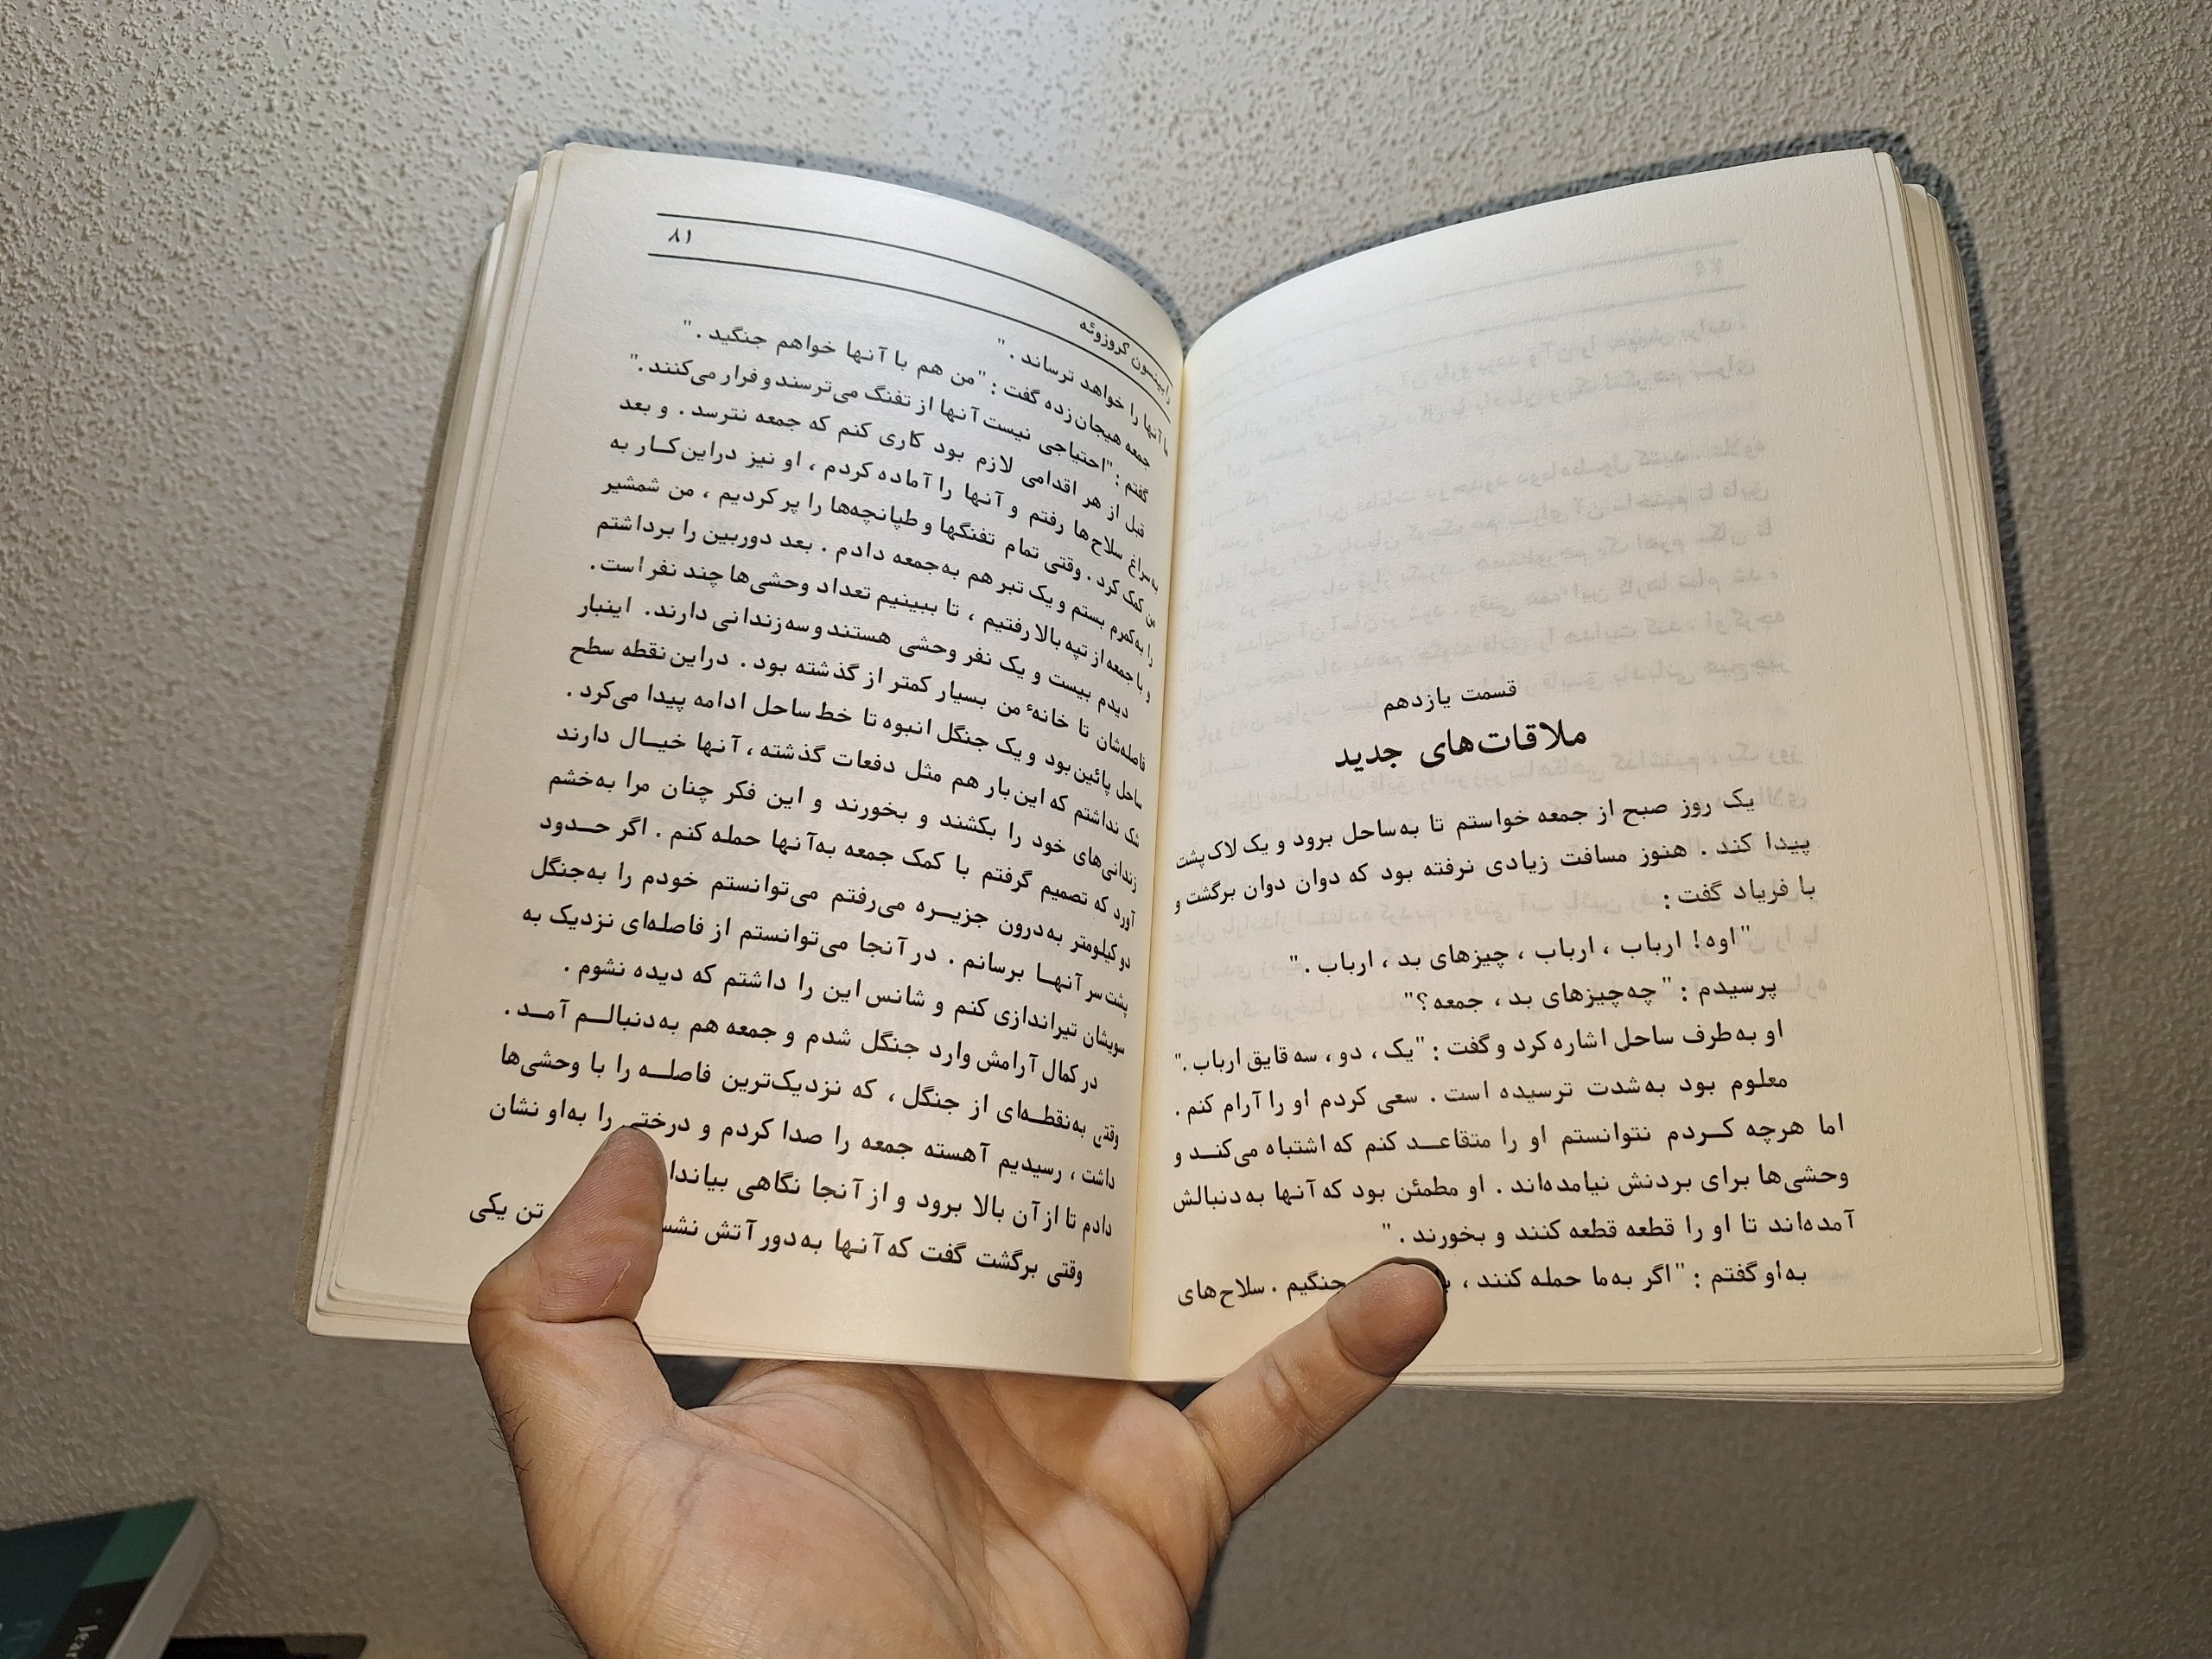 قسمت یازدهم
ملاقات‌های جدید
یک روز صبح از جمعه خواستم تا به‌ساحل برود و یک لاک‌پشت
پیدا کند . هنوز مسافت زیادی نرفته بود که دوان دوان برگشت و
با فریاد گفت :
"اوه! ارباب ، ارباب ، چیزهای بد ، ارباب ."
پرسیدم : "چه‌چیزهای بد ، جمعه؟"
او به‌طرف ساحل اشاره کرد و گفت : "یک ، دو ، سه قایق ارباب ."
معلوم بود به‌شدت ترسیده است . سعی کردم او را آرام کنم .
اما هرچه کـردم نتوانستم او را متقاعـد کنم که اشتباه می‌کنـد و
وحشی‌ها برای بردنش نیامده‌اند . او مطمئن بود که آنها به‌دنبالش
آمده‌اند تا او را قطعه قطعه کنند و بخورند ."
به‌او گفتم : "اگر به‌ما حمله کنند ، جنگیم . سلاح‌های
۸۱
کروزوئه
آنها را خواهد ترساند ."
جمعه هیجان‌زده گفت : "من هم با آنها خواهم جنگید ."
گفتم : "احتیاجی نیست آنها از تفنگ می‌ترسند و فرار می‌کنند ."
قبل از هر اقدامی لازم بود کاری کنم که جمعه نترسد . و بعد
به‌سراغ سلاح‌ها رفتم و آنها را آماده کردم ، او نیز دراین‌کـار به
من کمک کرد . وقتی تمام تفنگها و طپانچه‌ها را پر کردیم ، من شمشیر
را به‌کمرم بستم و یک تبر هم به‌جمعه دادم . بعد دوربین را برداشتم
و با جمعه از تپه بالا رفتیم ، تا ببینیم تعداد وحشی‌ها چند نفر است .
دیدم بیست و یک نفر وحشی هستند و سه زندانی دارند . اینبار
فاصله‌شان تا خانهٔ من بسیار کمتر از گذشته بود . دراین نقطه سطح
ساحل پائین بود و یک جنگل انبوه تا خط ساحل ادامه پیدا می‌کرد .
شک نداشتم که این‌بار هم مثل دفعات گذشته ، آنها خیـال دارند
زندانی‌های خود را بکشند و بخورند و این فکر چنان مرا به‌خشم
آورد که تصمیم گرفتم با کمک جمعه به‌آنها حمله کنم . اگر حـدود
دو کیلومتر به‌درون جزیـره می‌رفتم می‌توانستم خودم را به‌جنگل
پشت سر آنهـا برسانم . در آنجا می‌توانستم از فاصله‌ای نزدیک به
سویشان تیراندازی کنم و شانس این را داشتم که دیده نشوم .
در کمال آرامش وارد جنگل شدم و جمعه هم به‌دنبالـم آمـد .
وقتی به‌نقطـه‌ای از جنگل ، که نزدیک‌ترین فاصلـه را با وحشی‌ها
داشت ، رسیدیم آهسته جمعه را صدا کردم و درختی را به‌او نشان
دادم تا از آن بالا برود و از آنجا نگاهی
وقتی برگشت گفت که آنها به‌دور آتش تن یکی